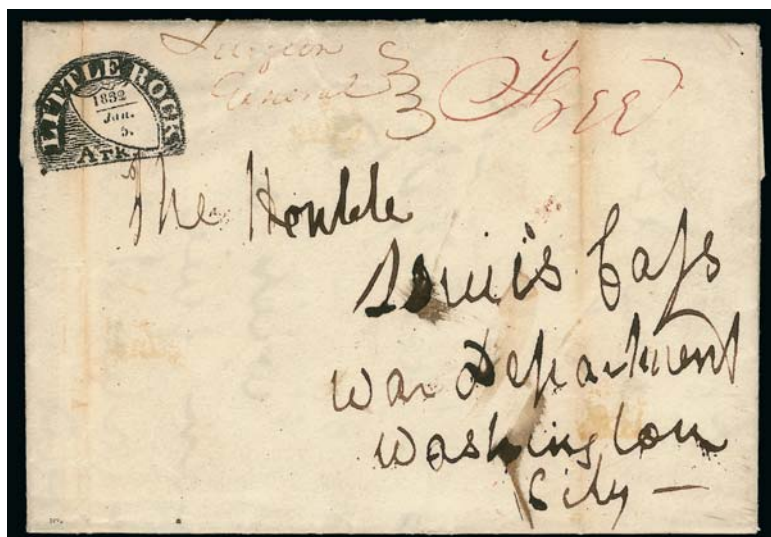 LITTLE ROCK
1832
Jan.
5.
Ark.
Surgeon
General
Free
The Honble
Lewis Cass
War Department
Washington
City —